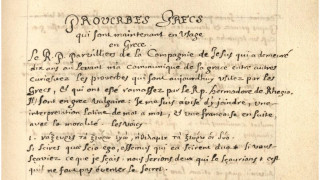 PROVERBES GRECS
qui sont maintenant en usage
en Grece.
Le R.P. parvilliers de la Compagnie de Jesus qui a demeuré
dix ans au levant m'a Communiqué de sa grace entre autres
curiositez les proverbes qui sont aujourdhuy usitez par les
Grecs, et qui ont esté ramassez par le R.p. Hermodore de Rhegio.
Il sont en grec Vulgaire; Je m'en suis y joindre, une
interpretation latine de mot a mot, et une francaise, en suite
avec sa moralité. les voicy
τὸ ξεύρεις τὸ ξεύρω ἐγω, τὸ ξεύρω
Si scires quae scio ego, essemus qui ea scirent duo. si vous
sçaviez ce que je sçais nous serions deux qui le sçaurions & cest
qui ne faut pas éventer le secret.